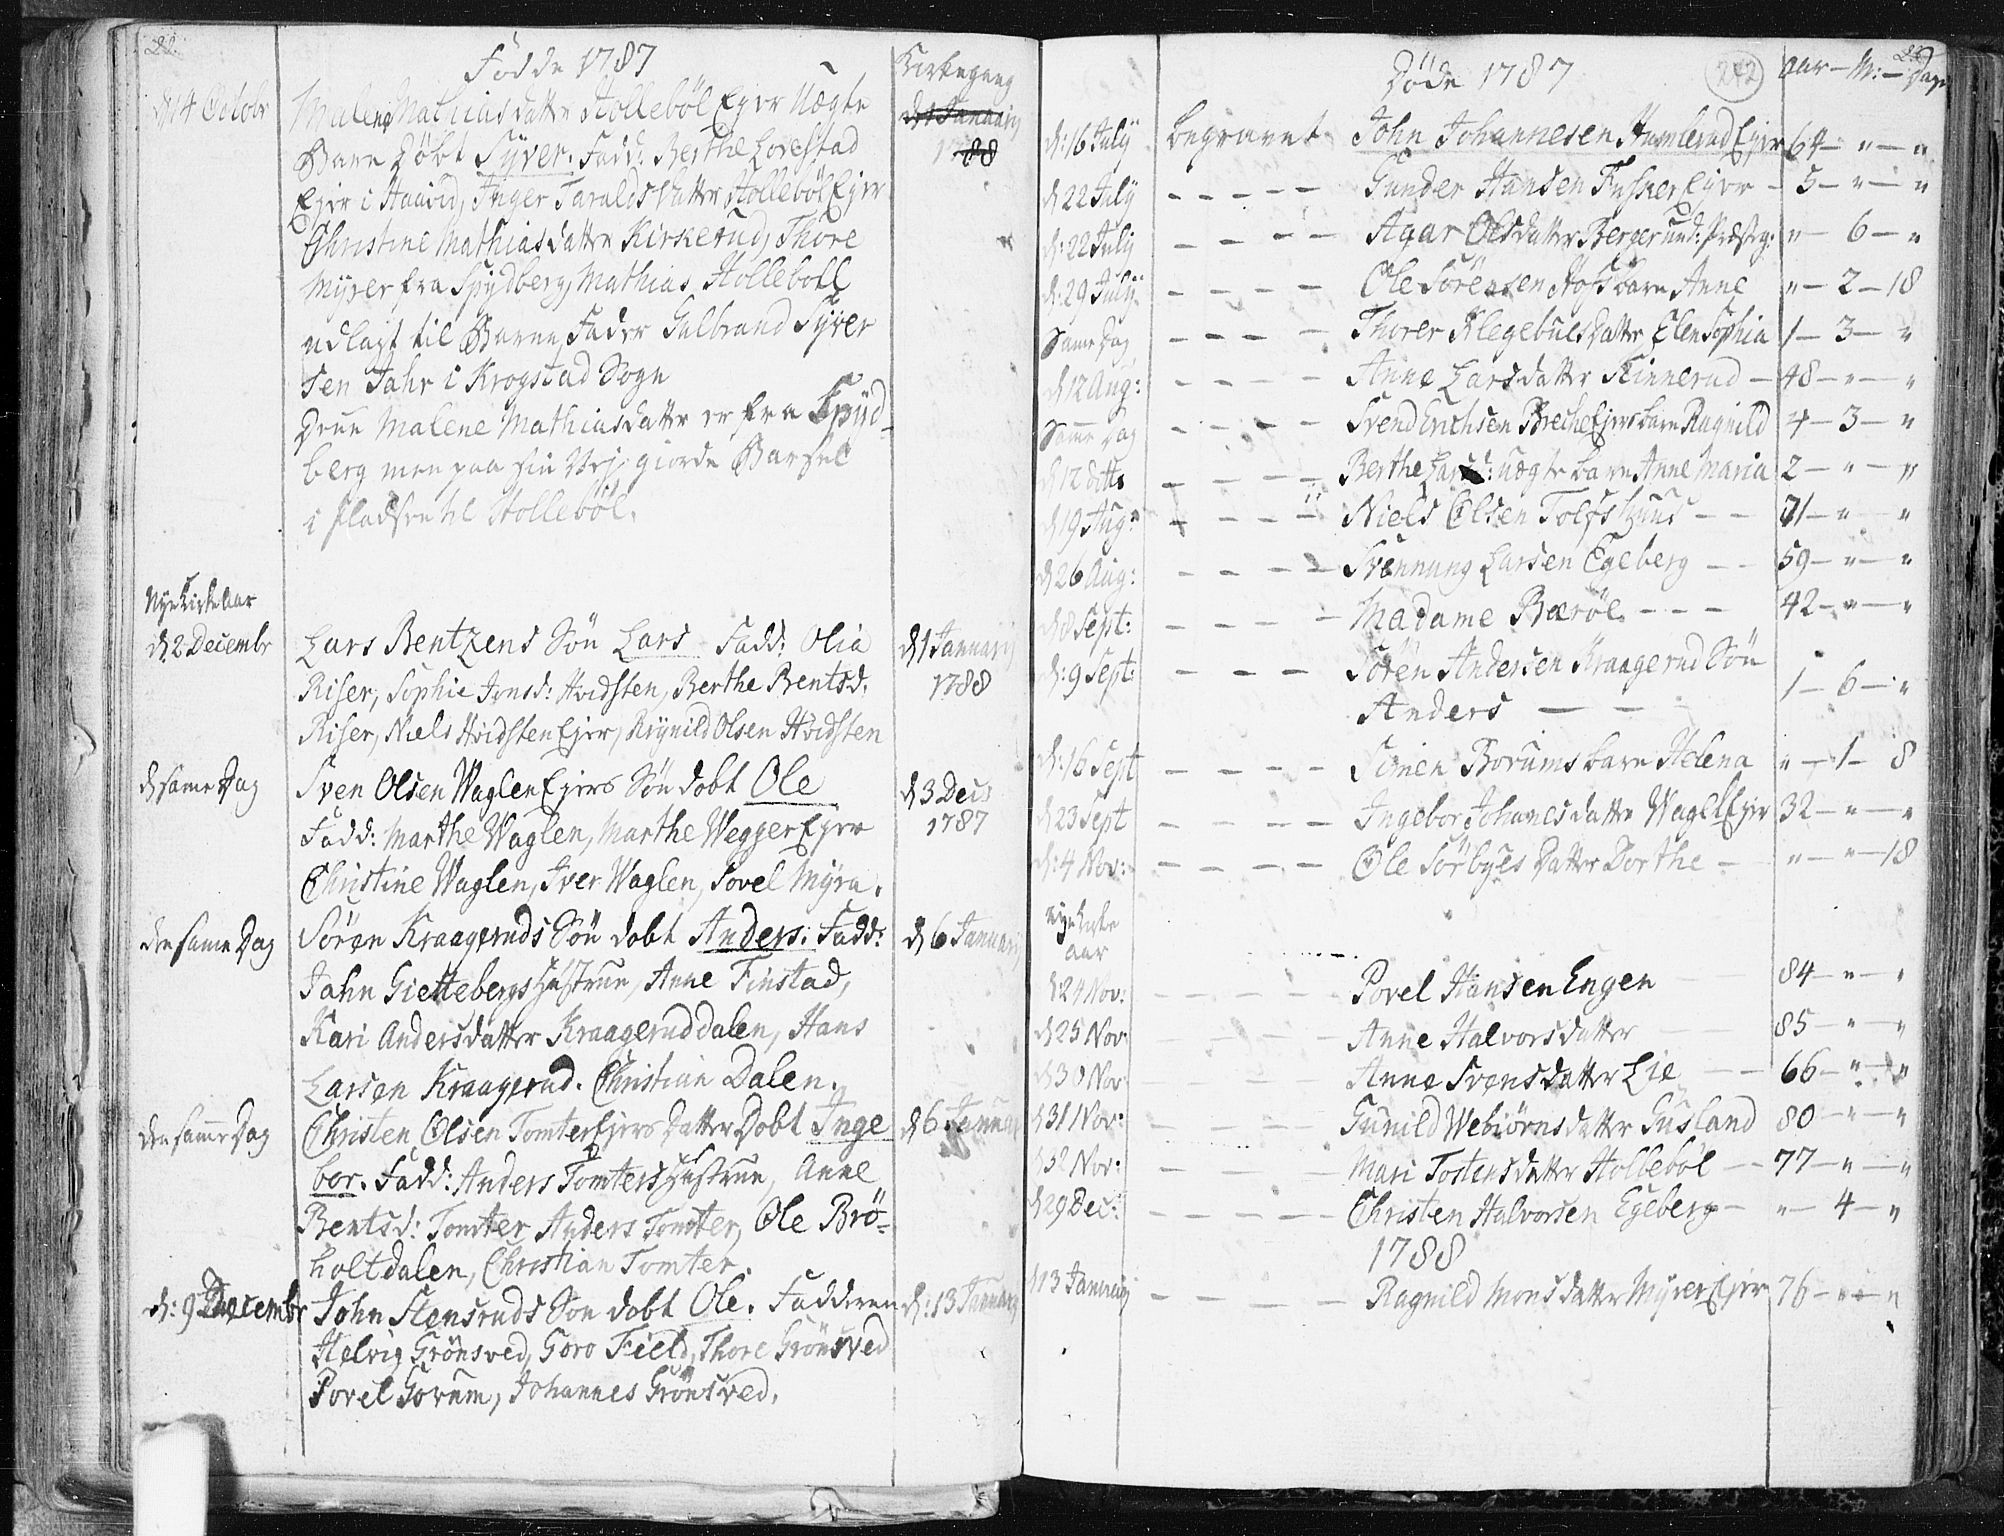 Födde 1787
Kirkegang
d 14 Octobr
Malene Mathiasdatter Holleböl Ejer Uægte
d 1 Januarij
Barn Döbt Syver. Fadd: Berthe Lorestad
1788
Ejer i Haavid, Inger Taraldsdatter Hollebøl Ejer
Christine Mathiasdatter Kirkerud, Thore
Myrer fra Spydberg, Mathias Holleböll
udlagt til Barne Fader Gulbrand Syver
sen Jahr i Krogstad Sogn
Denne Malene Mathiasdatter er fra Spyd-
berg men paa sin Vej giorde Barsel
i pladsen til Hollebøl.
Nye Kirke Aar
d. 2 Decembr
Lars Bentzens Sön Lars Fadd: Olia
d 1 Januarij
Riser, Sophie Jonsd: Hvidsten, Berthe Bentsd.
1788
Riser, Niels Hvidsten Ejer, Reynild Olsen Hvidsten
d same Dag
Sven Olsen Waglen Ejers Sön dobt Ole
d 3 Decs
Fadd: Marthe Waglen, Marthe Wegger Ejer
1787
Christine Waglen, Iver Waglen, Povel Myra.
den same Dag
Sören Kraageruds Sön dobt Anders. Fadd:
d 6 Januarij
Jahn Giettebergs Hustrue, Anne Finstad,
Kari Andersdatter Kraageruddalen, Hans
Larsen Kraagerud. Christian Dalen.
den samme Dag
Christen Olsen Tomter Ejers Datter Dobt Inge
d 6 Januar
bor. Fadd: Anders Tomters Hustrue, Anne
Bentsd: Tomter Anders Tomter, Ole Brö-
holtdalen, Christian Tomter.
d: 9 Decembr
John Stensruds Son dobt Ole. Fadderne
d: 13 Januarij
Helvig Grönsved, Goro Field, Thore Grönsved
Povel Gorum, Johannes Grönsved.
Döde 1787
272
Aar - M: - Dage
d: 16 July begravet John Johannesen Humlerud Ejer 64 - " - "
d 22 July - - - - - Gunder Hansen Fusker Ejer - 5 - " - "
d: 22 July - - - - Agar Olsdatter Berger und: Præsteg: " - 6 - "
d: 29 July - - - - Ole Sörensen Hofs barn Anne " - 2 - 18
Same Dag - - - - Thorer Klegebuls Datter Elen Sophia 1 - 3 - "
d 12 Aug: - - - - Anne Larsdatter Kinnerud - 48 - " - "
Samme Dag - - - - Svend Erichsen Breche Ejers barn Ragnild 4 - 3 - "
d 12 ditto - - - - Berthe Larsd: uægte barn Anne Maria 2 - " - "
d 19 Aug: - - - - Niels Olsen Tolfshuus - - 71 - " - "
d 26 Aug: - - - - Svennung Larsen Egeberg - - 59 - " - "
d 8 Sept: - - - - Madame Bæröe - - - 42 - " - "
d: 9 Sept: - - - Sören Andersen Kraagerud Sön
Anders - - - 1 - 6 - "
d: 16 Sept - - - - Simen Borums barn Helena " - 1 - 8
d 23 Sept - - - - Ingebor Johanesdatter Wagel Ejer 32 - " - "
d: 4 Nov: - - - - Ole Sörbyes Datter Dorthe - " - " - 18
nye Kirke
aar
d: 24 Nov: - - - - Povel Hansen Engen 84 - " - "
d 25 Nov - - - - Anne Halvorsdatter 85 - " - "
d 30 Nov - - Anne Svensdatter Lie - - 66 - " - "
d 31 Nov: - - - - Gunild Webiörnsdatter Gusland 80 - " - "
d 2 Nov: - - - - Mari Tostensdatter Hollebøl - 77 - " - "
d 29 Dec: - - - - - Christen Halvorsen Egeberg - " - 4 - "
1788
d 13 Januarij - - - - - Ragnild Monsdatter Myrer Ejer 76 - " - "